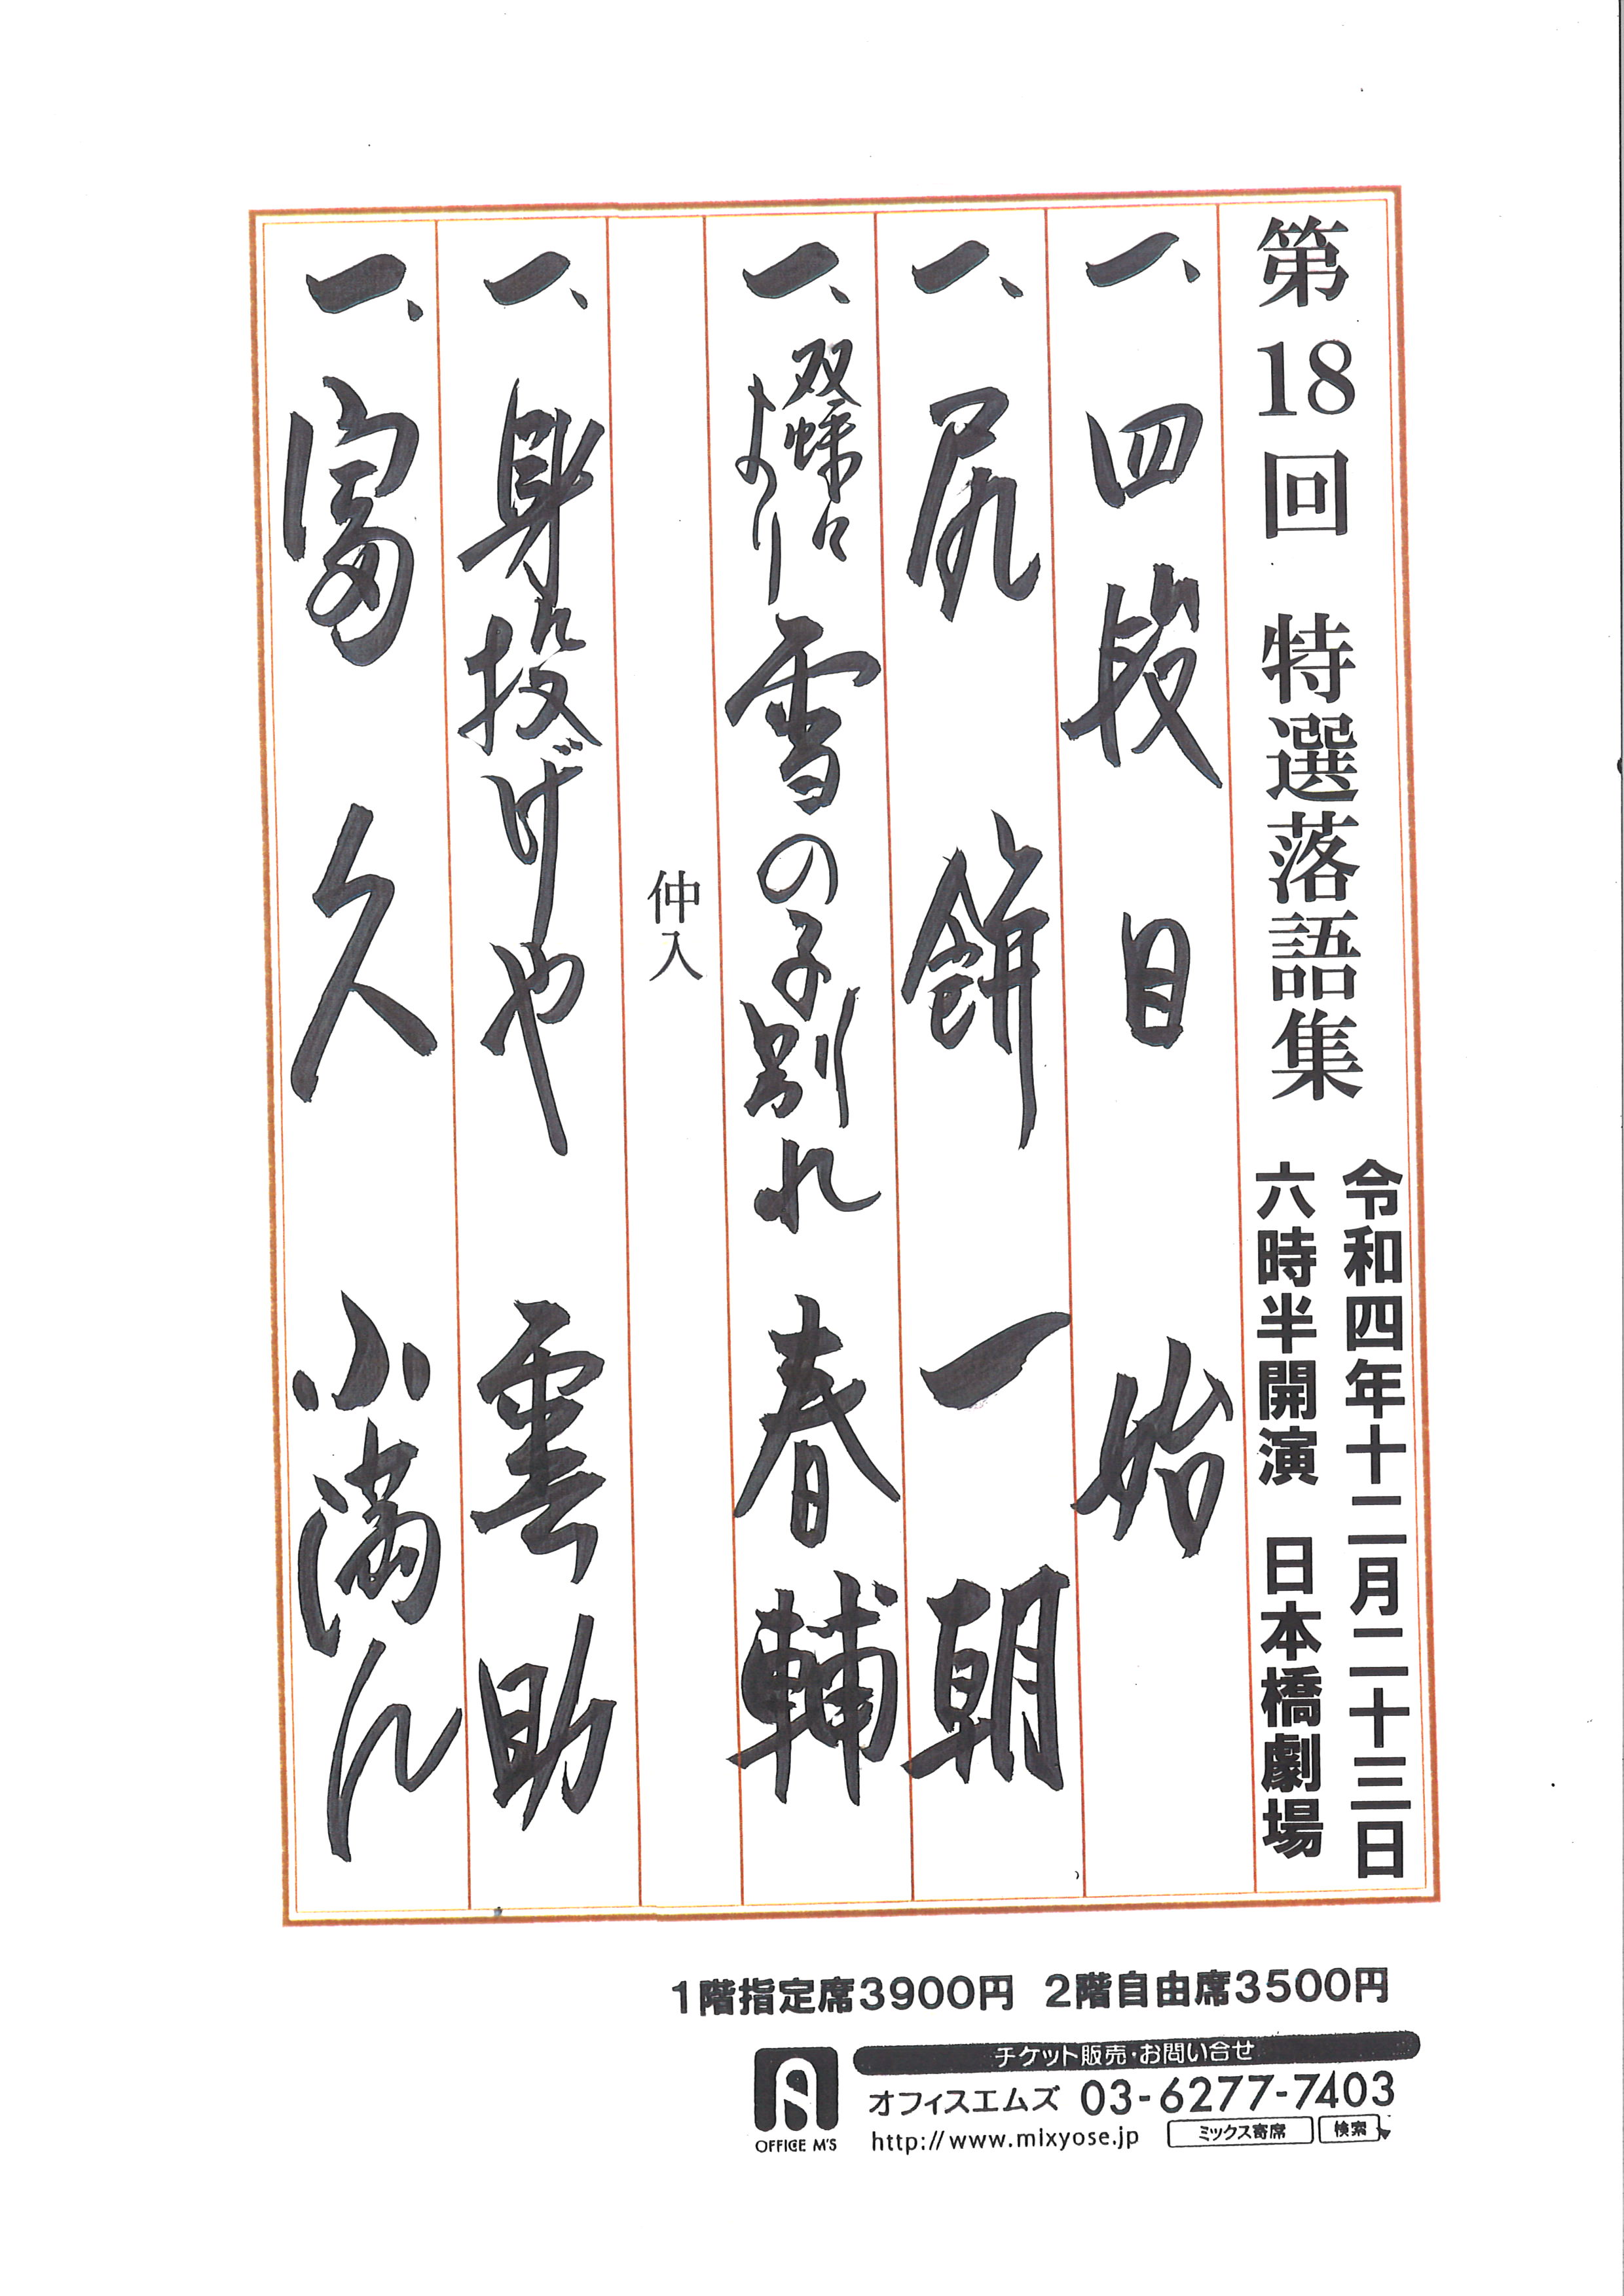 第18回 特選落語集
令和四年十二月二十三日
六時半開演 日本橋劇場
一、四段目 始
一、尻餅 一朝
一、双蝶々より 雪の子別れ 春輔
仲入
一、身投げや 雲助
一、富久 小満ん
1階指定席3900円 2階自由席3500円
チケット販売・お問い合せ
オフィスエムズ 03-6277-7403
http://www.mixyose.jp ミックス寄席 検索
OFFICE M'S